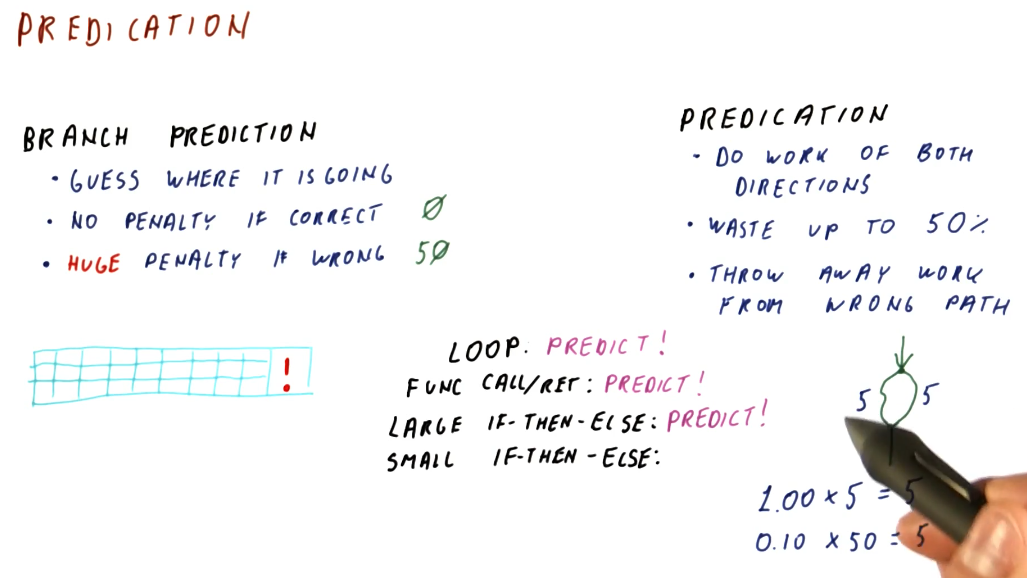 PREDICATION
BRANCH PREDICTION
• GUESS WHERE IT IS GOING
• NO PENALTY IF CORRECT 0
• HUGE PENALTY IF WRONG 50
!
PREDICATION
• DO WORK OF BOTH
DIRECTIONS
• WASTE UP TO 50%
• THROW AWAY WORK
FROM WRONG PATH
LOOP: PREDICT!
FUNC CALL/RET: PREDICT!
LARGE IF-THEN-ELSE: PREDICT!
SMALL IF-THEN-ELSE:
5 5
1.00 × 5 = 5
0.10 × 50 = 5